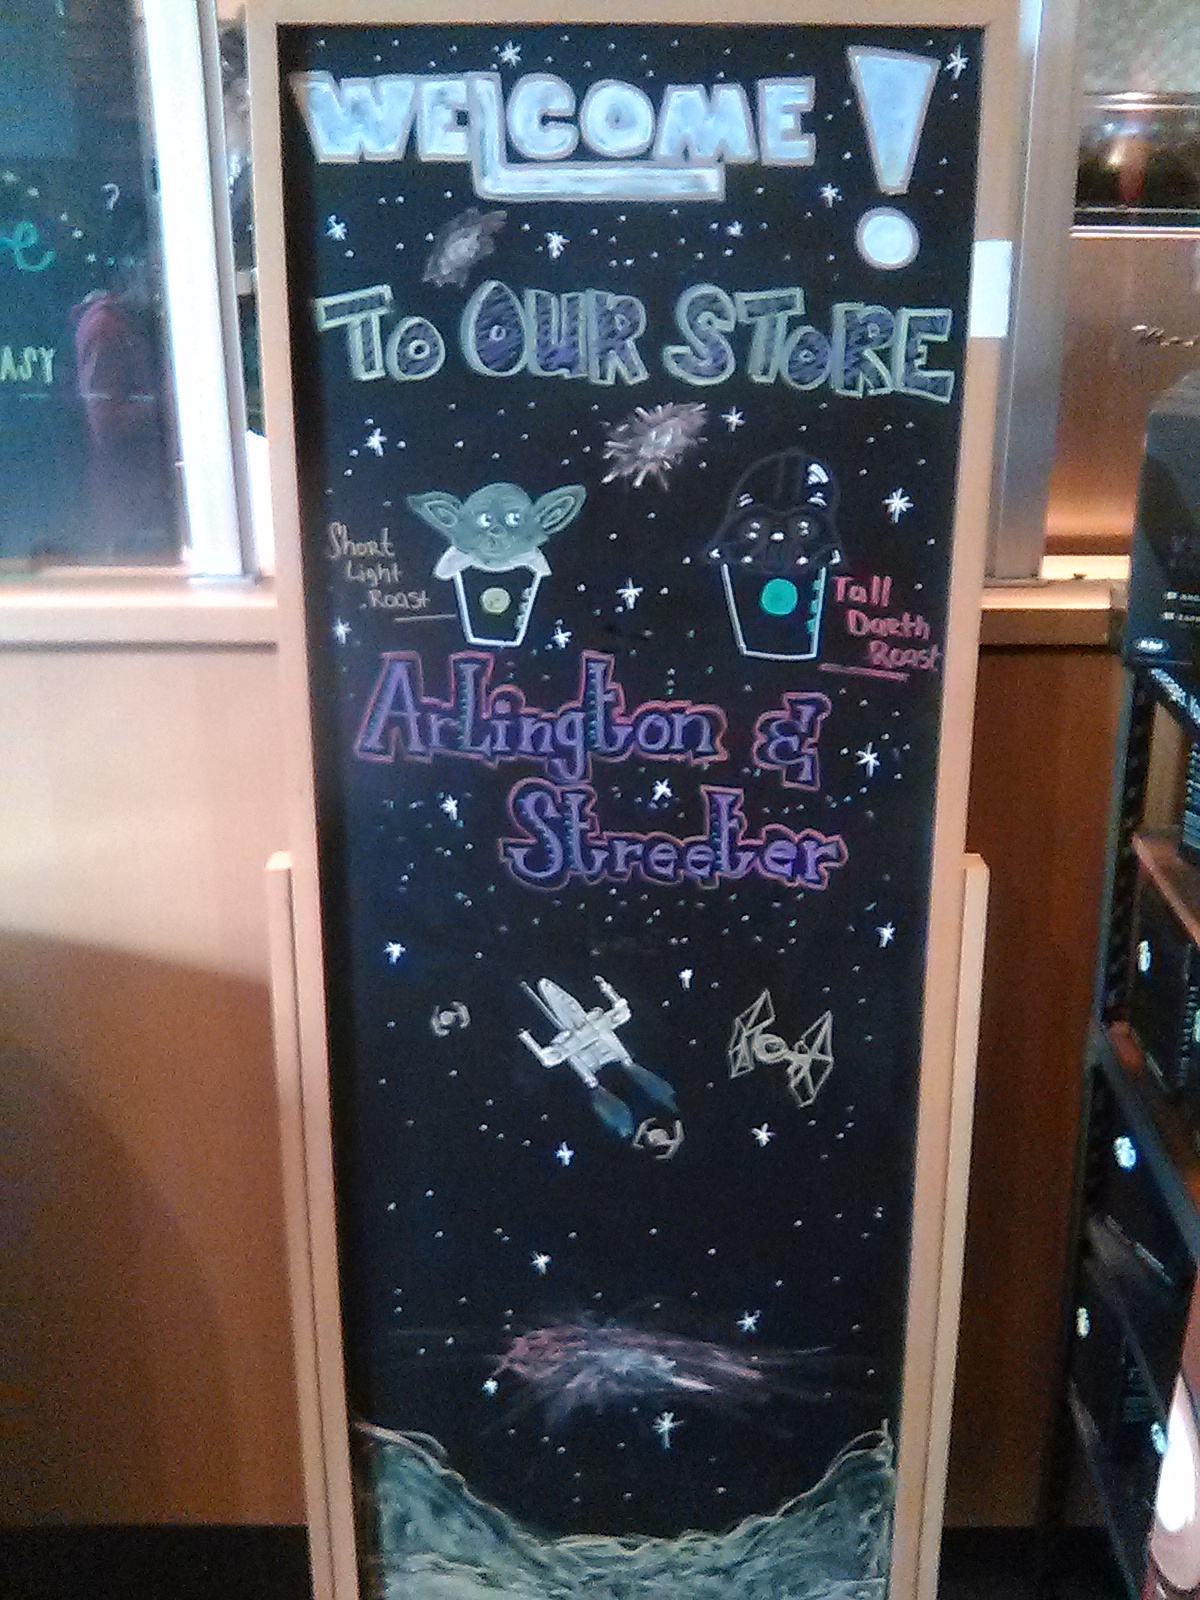 WELCOME!
TO OUR STORE
Short
Light
Roast
Tall
Darth
Roast
Arlington &
Streeter
e
?
ASY